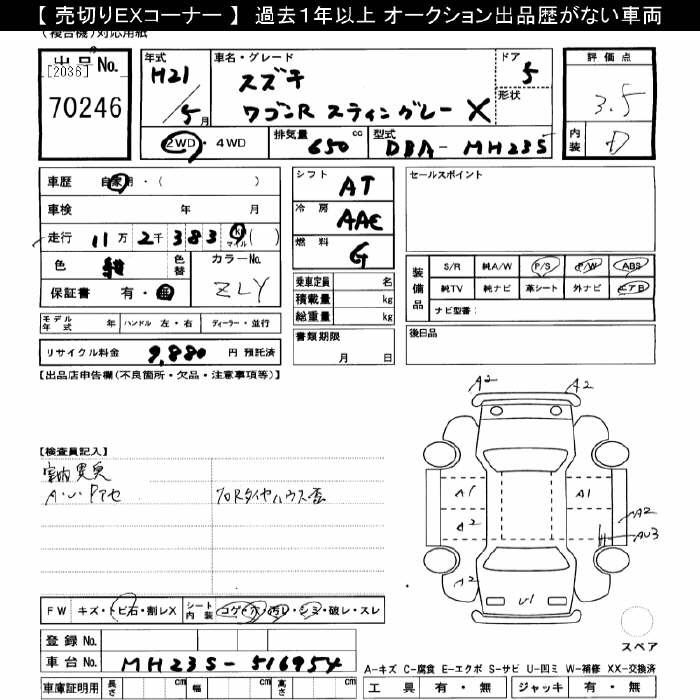 【 売切りEXコーナー 】 過去１年以上 オークション出品歴がない車両
(複合機)対応用紙
出品No.
[2036]
70246
年式
H21
5月
車名・グレード
スズキ
ワゴンR スティングレー X
ドア
5
形状
評価点
3.5
内装
D
2WD ・ 4WD
排気量
650 cc
型式
DBA- MH23S
車歴 自家用・( )
車検 年 月
走行 11万 2千 383 Km マイル ( )
色 紺 色替
カラーNo.
ZLY
保証書 有・無
シフト AT
冷房 AAC
燃料 G
乗車定員 名
積載量 kg
総重量 kg
書類期限
月 日
セールスポイント
装備品
S/R 純A/W P/S P/W ABS
純TV 純ナビ 革シート 外ナビ エアB
ナビ型番：
後日品
モデル年式 年 ハンドル 左・右 ディーラー・並行
リサイクル料金 9,880 円 預託済
【出品店申告欄(不良箇所・欠品・注意事項等)】
【検査員記入】
A・U・Pアセ
A2 A2
A1 A1
A2 A2
AU3
A2
U1
スペア
FW キズ・トビ石・割レX
シート内装 コゲ・穴・汚レ・シミ・破レ・スレ
登録 No.
車台 No. MH23S-516954
車庫証明用 長さ cm 幅 cm 高さ cm
A-キズ C-腐食 E-エクボ S-サビ U-凹ミ W-補修 XX-交換済
工具 有・無 ジャッキ 有・無